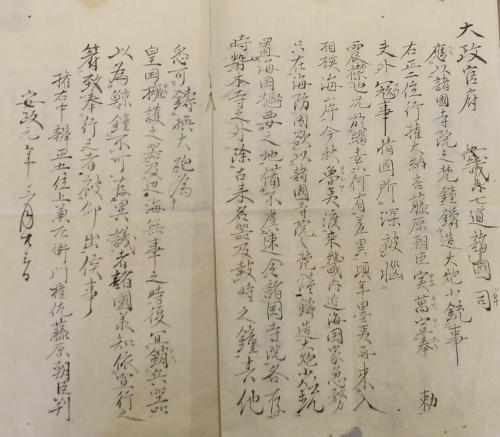 大政官府 五畿七道諸國司
應以諸國寺院之梵鐘鑄造大炮小銃事
右正二位行權大納言藤原朝臣実萬宣奉 勅
夫外寇事情固所深被悩
宸襟也況於緇素何有差異頃年墨夷再来入
相模海岸今秋魯夷渡来畿内近海国家急務
只在海防因欲以諸国寺院之梵鐘鑄造大炮小銃
置海国樞要之地備不虞速令諸国寺院各存
時勢本寺之外除古来名器及鼓時之鐘其他
悉可鑄換大炮為
皇国擁護之器及辺海無事之時復宜銷兵器
以為鯨鐘不可敢異議者諸國承知依宣行之
符致奉行之者被仰出候事
権右中辨正五位上兼左衛門権佐藤原朝臣判
安政元年 三月